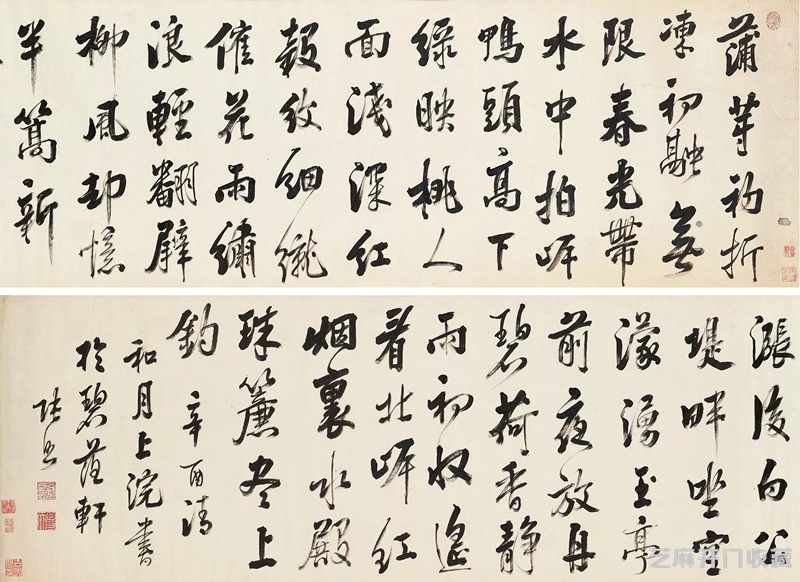 蒲芽初折
凍初融無
限春光帶
水中拍岸
鴨頭高下
綠映桃人
面淺深紅
縠紋細織
催花雨繡
浪輕翻襞
柳風却憶
半篙新
漲後白公
堤畔坐空
濛湧玉亭
前夜放舟
碧荷香靜
雨初收遙
看北岸紅
烟裏水殿
珠簾盡上
鈎 辛酉清
和月上浣書
於碧蔭軒
張照
芝麻开门收藏